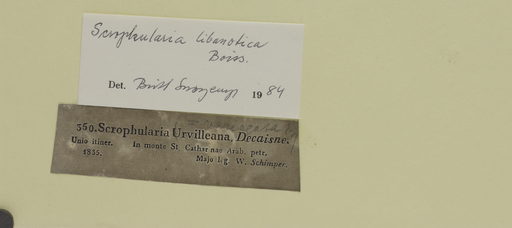 Scrophularia libanotica
Boiss.
Det. Britt Snogerup 1984
350. Scrophularia Urvilleana, Decaisne.
Unio itiner. In monte St. Catharinae Arab. petr.
1835. Majo leg. W. Schimper.